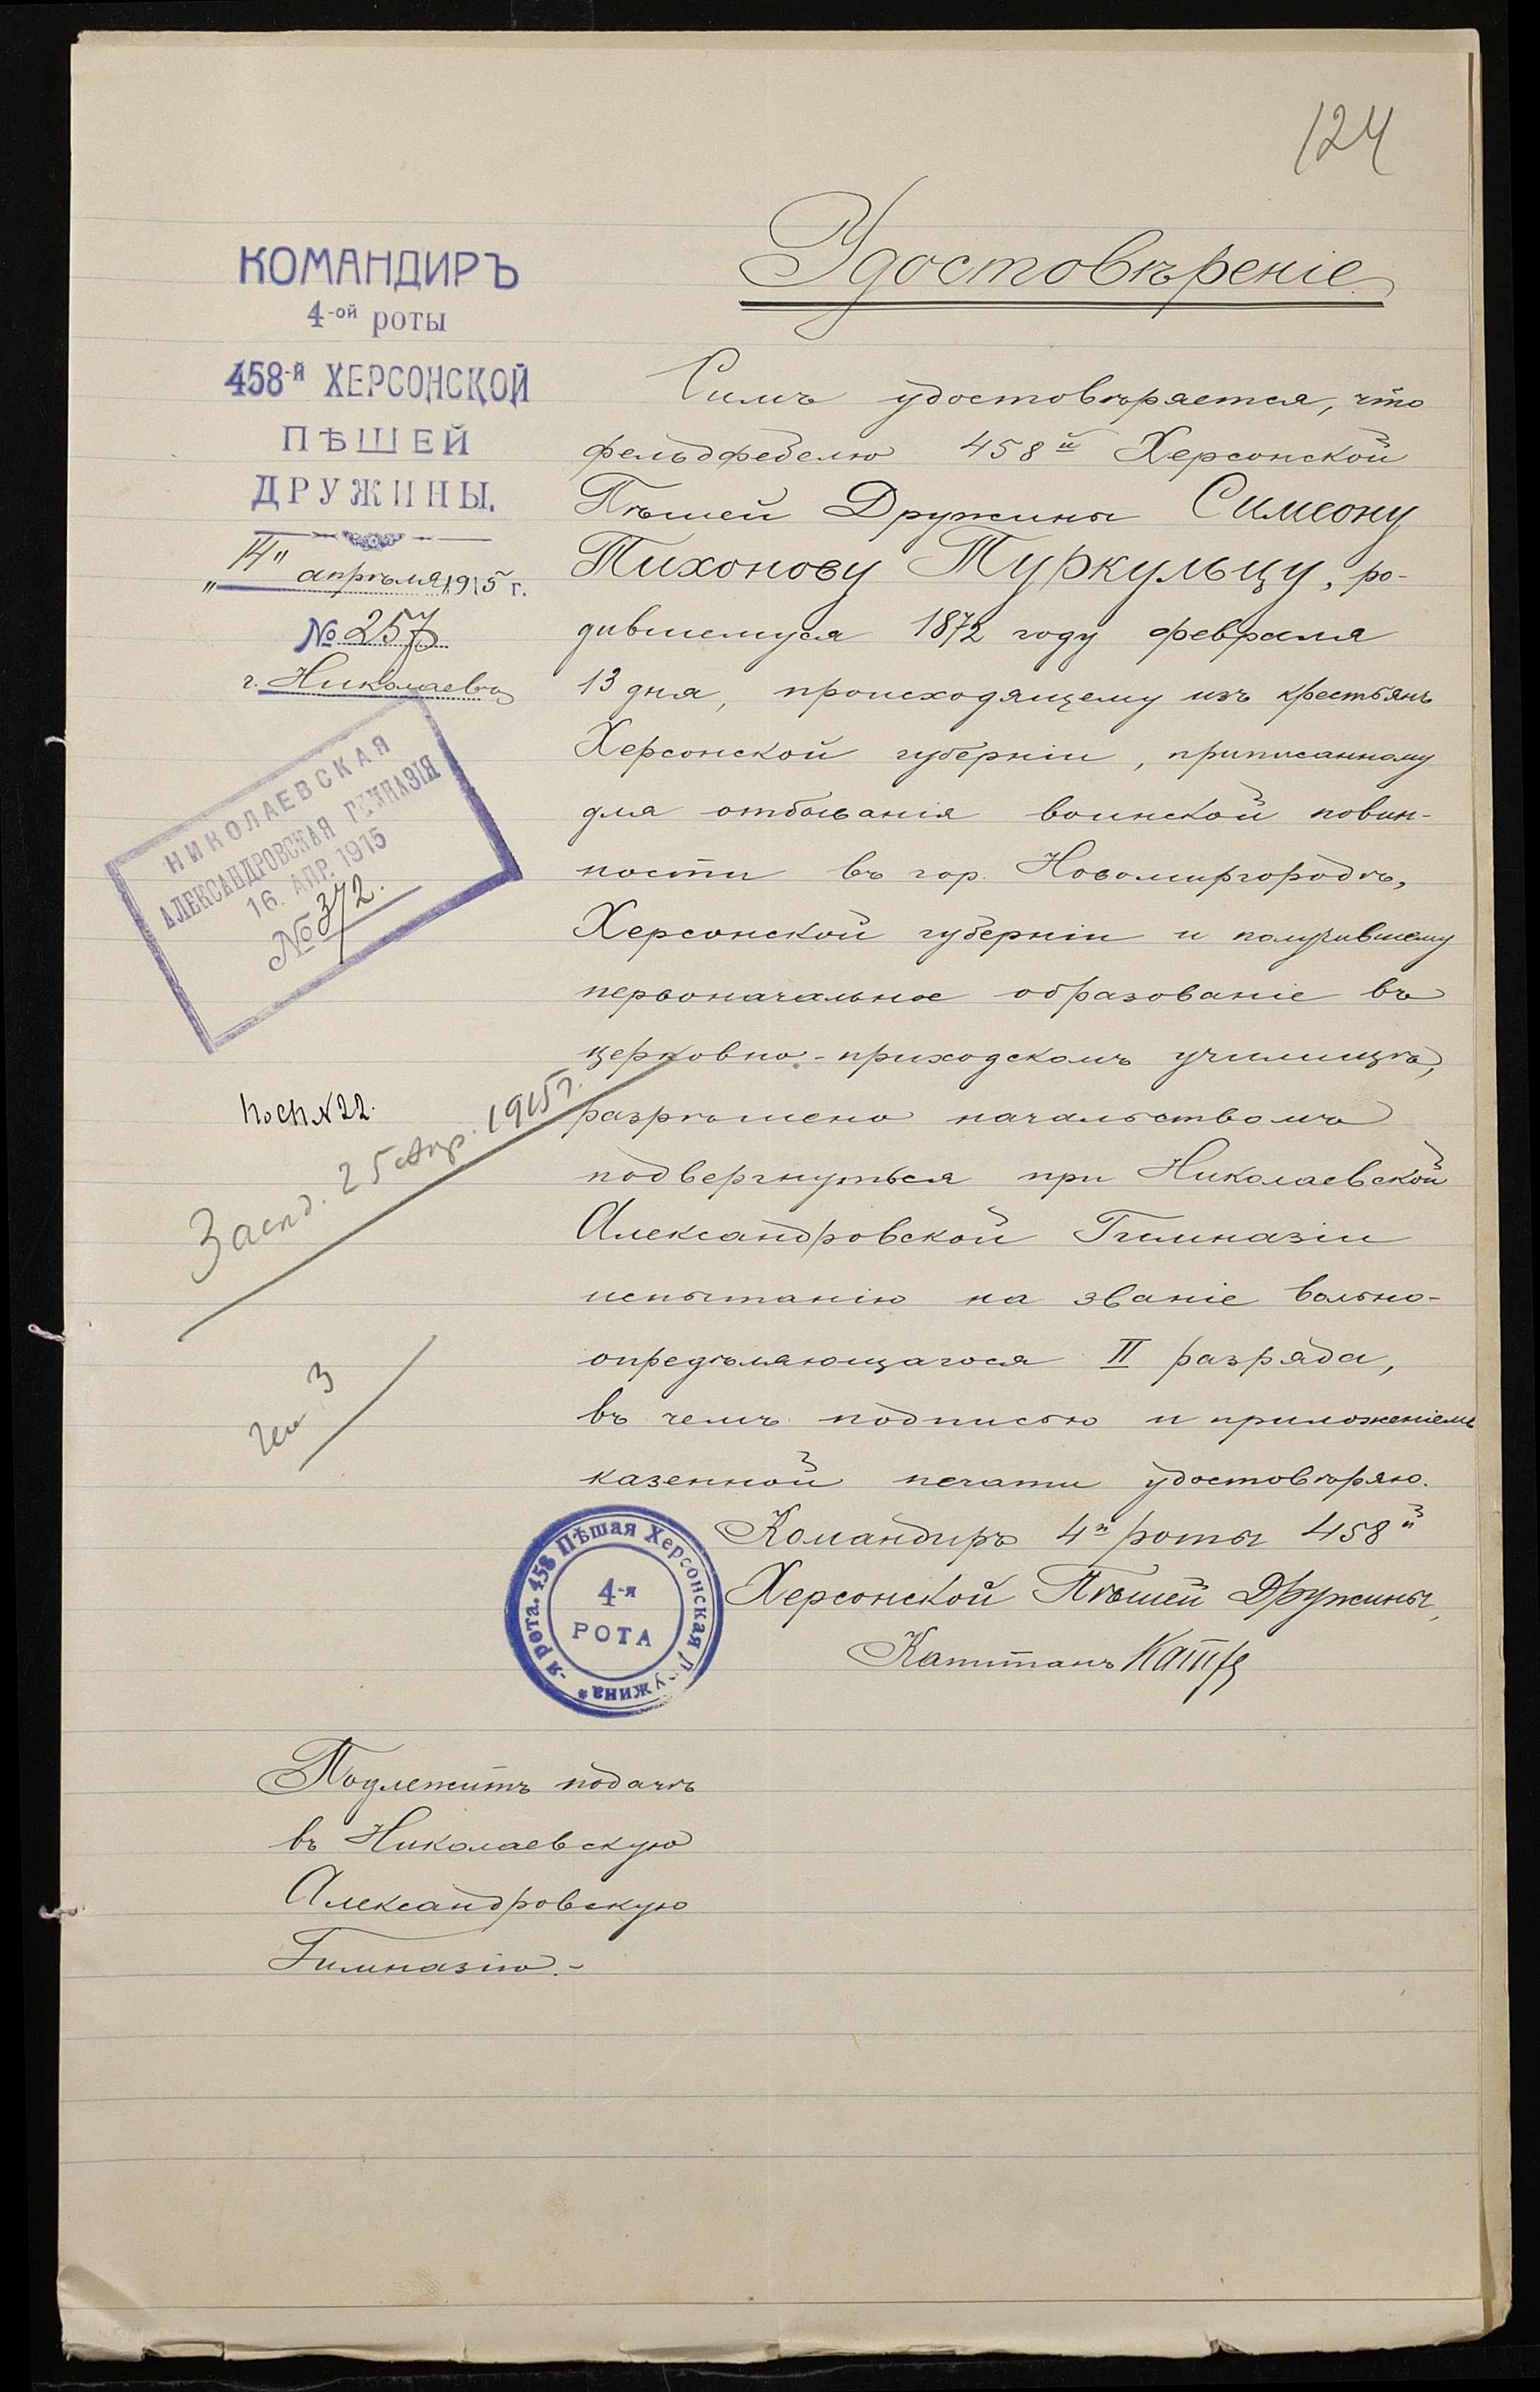 124
КОМАНДИРЪ
4-ой роты
458-й ХЕРСОНСКОЙ
ПѢШЕЙ
ДРУЖИНЫ.
„14" апрѣля 1915 г.
№ 257
г. Николаевъ
НИКОЛАЕВСКАЯ
АЛЕКСАНДРОВСКАЯ ГИМНАЗІЯ
16. АПР. 1915
№ 372.
25 Апр. 1915 г.
Удостовѣреніе
Симъ удостовѣряется, что
фельдфебелю 458й Херсонской
Пѣшей Дружины Симеону
Тихонову Туркульцу, ро-
дившемуся 1872 году февраля
13 дня, происходящему изъ крестьянъ
Херсонской губерніи, приписанному
для отбыванія воинской повин-
ности въ гор. Новомиргородѣ,
Херсонской губерніи и получившему
первоначальное образованіе въ
церковно-приходскомъ училищѣ,
разрѣшено начальствомъ
подвергнуться при Николаевской
Александровской Гимназіи
испытанію на званіе вольно-
опредѣляющагося II разряда,
въ чемъ подписью и приложеніемъ
казенной печати удостовѣряю.
Командиръ 4й роты 458й
Херсонской Пѣшей Дружины,
Капитанъ
4-я рота. 458 Пѣшая Херсонская Дружина*
4-я
РОТА
Подлежитъ подачѣ
въ Николаевскую
Александровскую
Гимназію.-